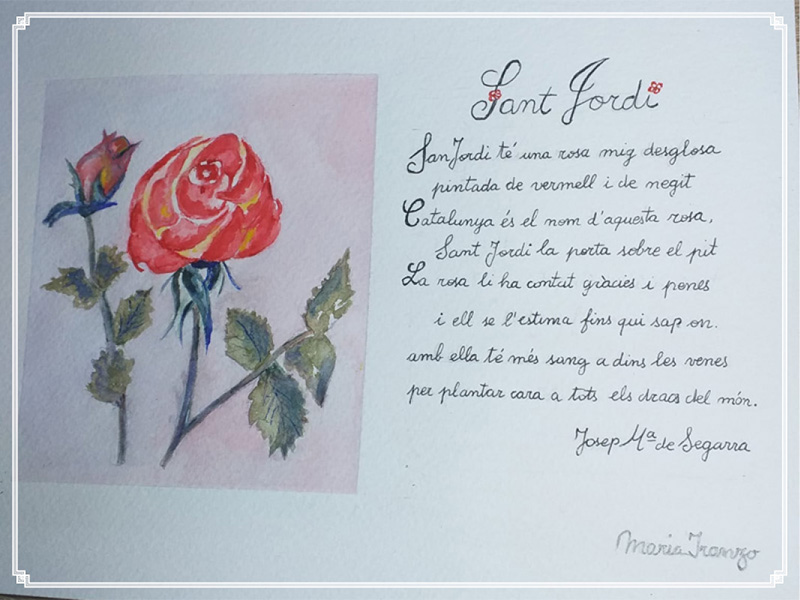 Sant Jordi
SanJordi té una rosa mig desglosa
pintada de vermell i de negit
Catalunya és el nom d'aquesta rosa,
Sant Jordi la porta sobre el pit
La rosa li ha contat gràcies i pones
i ell se l'estima fins qui sap on.
amb ella té més sang a dins les venes
per plantar cara a tots els dracs del món.
Josep Mª de Segarra
Maria Tranzo